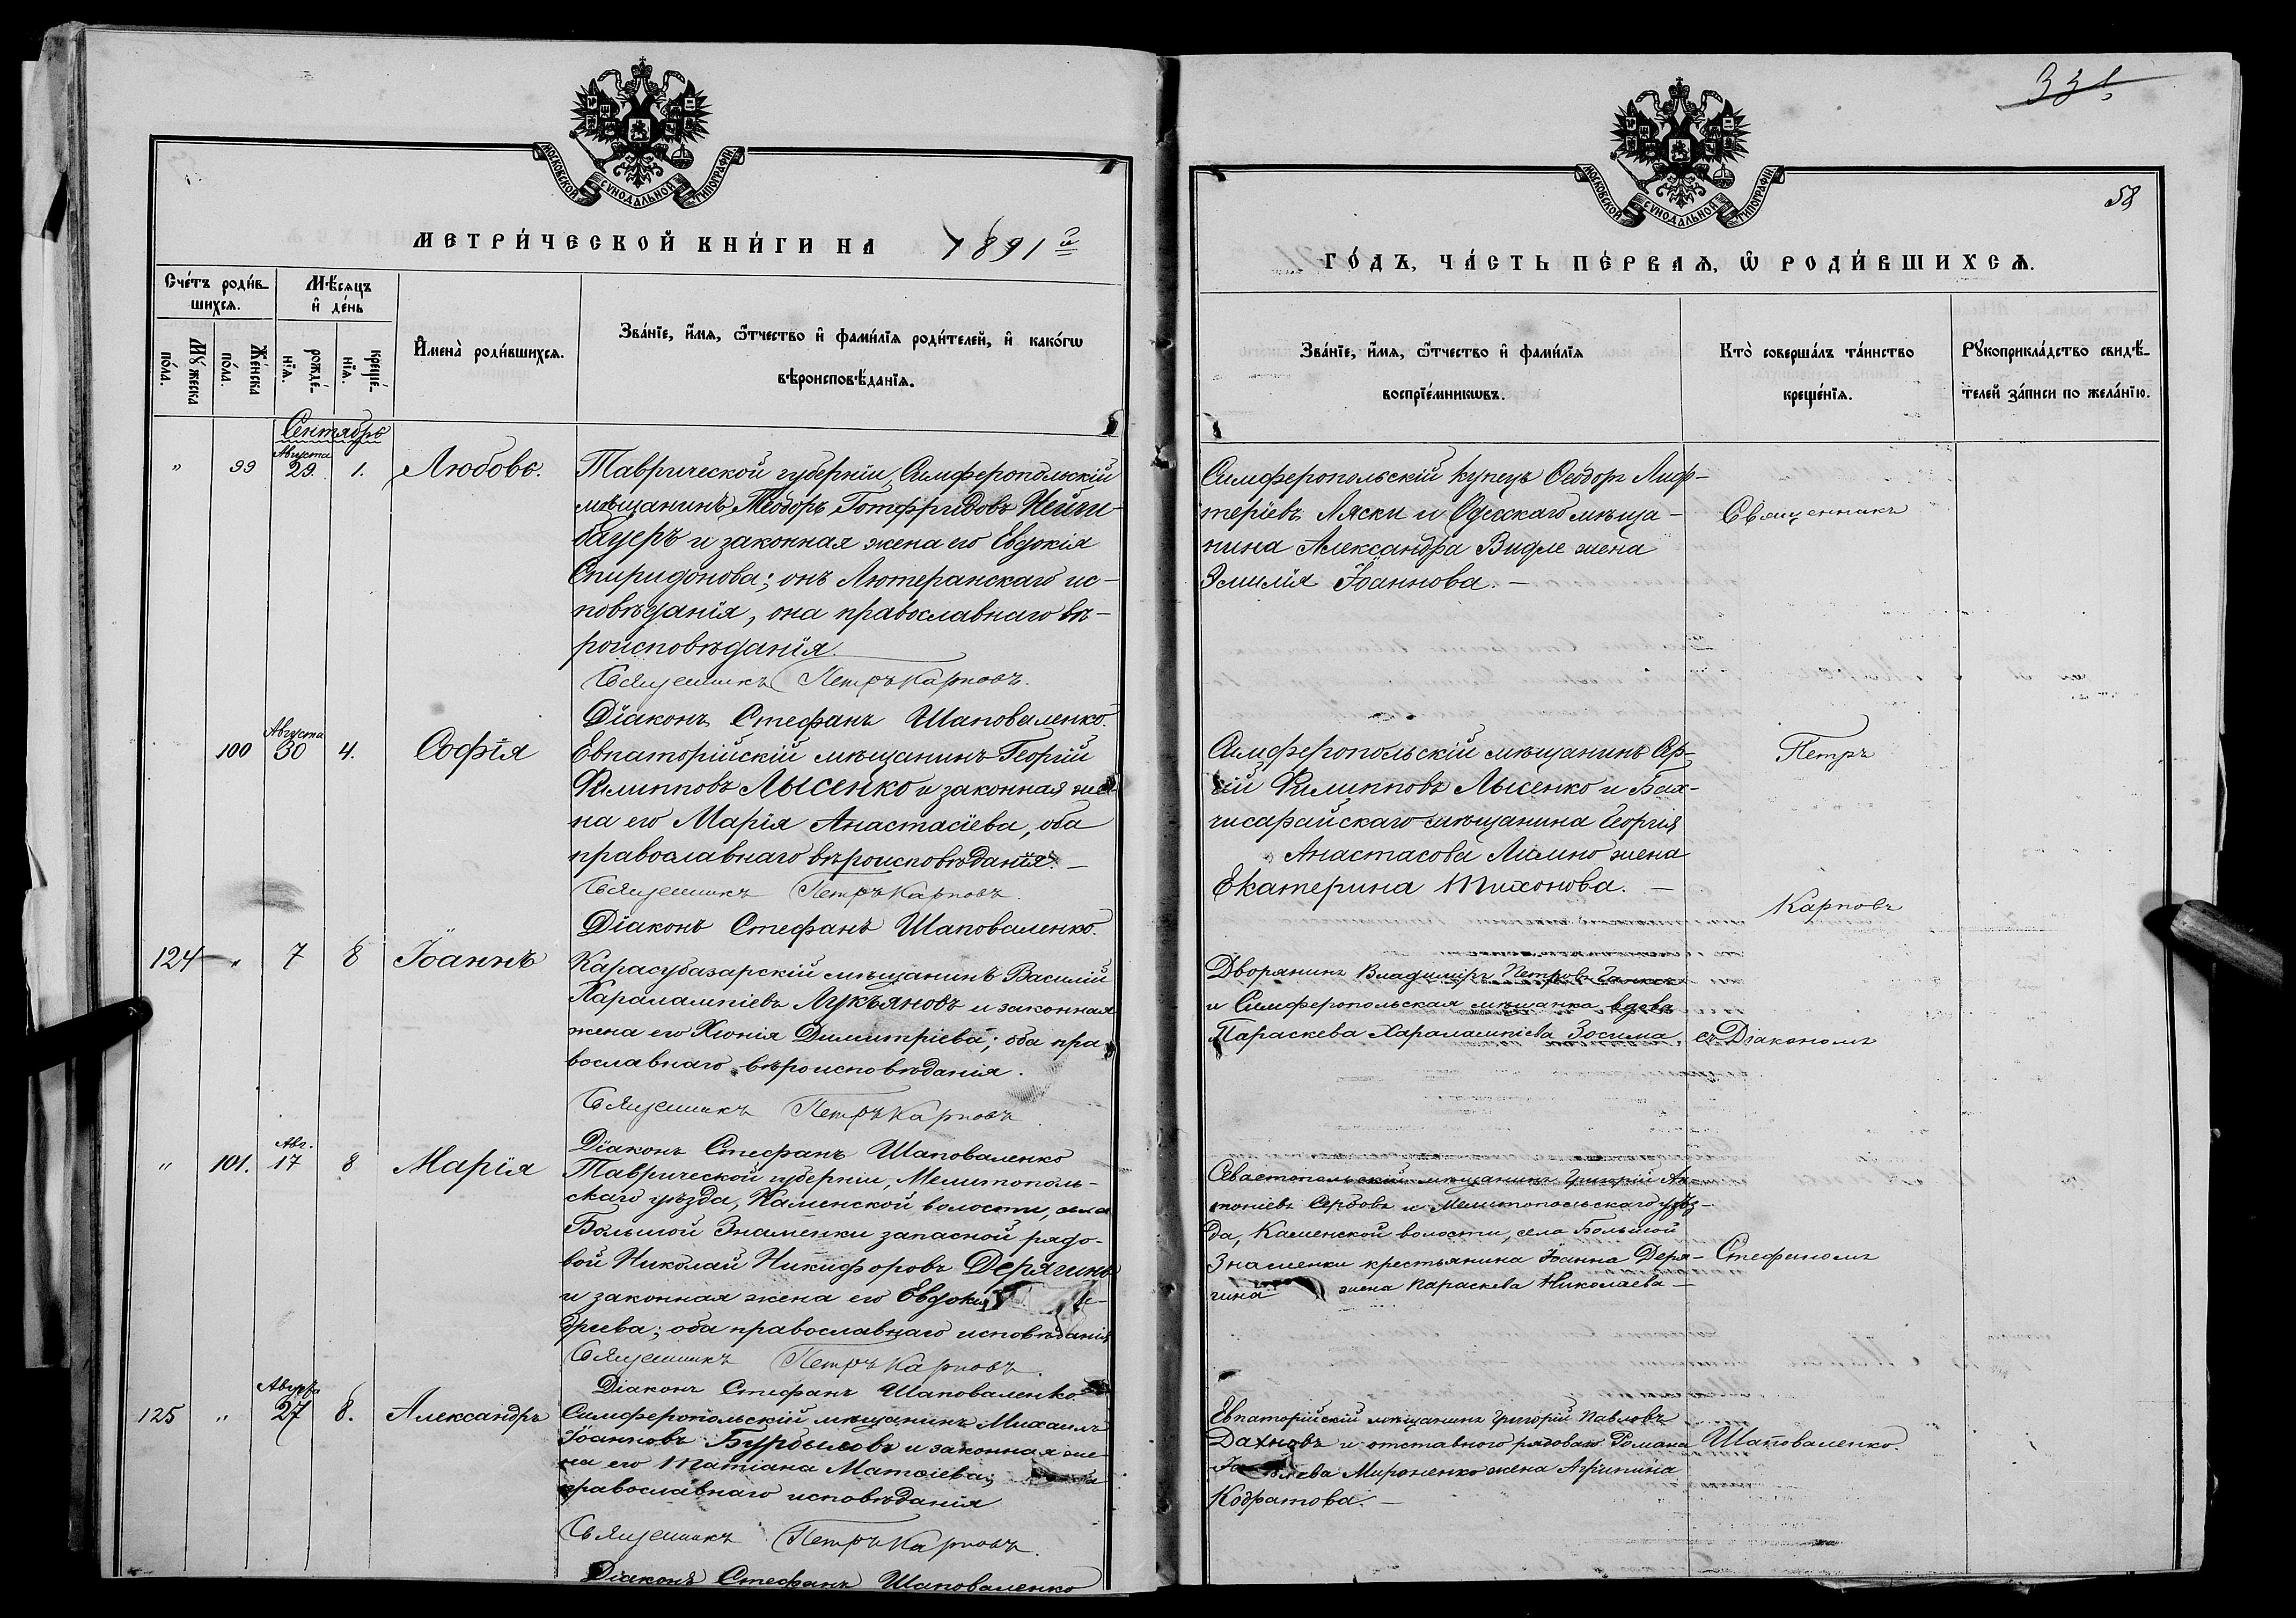 331
58
МОСКОВСКОЙ СѴНОДАЛЬНОЙ ТИПОГРАФІИ
МОСКОВСКОЙ СѴНОДАЛЬНОЙ ТИПОГРАФІИ
МЕТРИ́ЧЕСКОЙ КНИ́ГИ НА 1891й
ГО́ДЪ, ЧА́СТЬ ПЕ́РВАѦ, Ѡ҆ РОДИ́ВШИХСѦ.
Сче́тъ роди́в-
шихсѧ.
Мꙋ́жеска по́ла.
Же́нска по́ла.
Мѣ́сѧцъ
и҆ де́нь
рожде́-
нїѧ.
креще́-
нїѧ.
И҆мена̀ роди́вшихсѧ.
Зва́нїе, и҆́мѧ, ѻ҆́тчество и҆ фами́лїѧ роди́телей, и҆ како́гѡ
вѣроисповѣ́данїѧ.
Зва́нїе, и҆́мѧ, ѻ҆́тчество и҆ фами́лїѧ
воспрїе́мникѡвъ.
Кто̀ соверша́лъ та́инство
креще́нїѧ.
Рꙋкоприкла́дство свидѣ́-
телей за́писи по жела́нїю.
Сентябрь
" 99 Августа 29. 1. Любовь.
Таврической губерніи, Симферопольскій
мѣщанинъ Теодоръ Готфридовъ Нейги-
бауеръ и законная жена его Евдокія
Спиридонова; онъ Лютеранскаго ис-
повѣданія, она православнаго вѣ-
роисповѣданія.
Священникъ Петръ Карповъ.
Діаконъ Стефанъ Шаповаленко.
Симферопольскій купецъ Ѳеодоръ Лиф-
теріевъ Ляски и Одесскаго мѣща-
нина Александра Видле жена
Эмилія Іоаннова. —
Священникъ
100 Августа 30 4. Софія
Евпаторійскій мѣщанинъ Георгій
Филипповъ Лысенко и законная же-
на его Марія Анастасіева, оба
православнаго вѣроисповѣданія. —
Священникъ Петръ Карповъ.
Діаконъ Стефанъ Шаповаленко.
Симферопольскій мѣщанинъ Сер-
гій Филипповъ Лысенко и Бах-
чисарайскаго мѣщанина Георгія
Анастасова Лимно жена
Екатерина Тихонова. —
Петръ
Карповъ
124 " 7 8 Іоаннъ
Карасубазарскій мѣщанинъ Василій
Харалампіевъ Лукьяновъ и законная
жена его Хіонія Димитріева; оба пра-
вославнаго вѣроисповѣданія.
Священникъ Петръ Карповъ
Діаконъ Стефанъ Шаповаленко
Дворянинъ Владиміръ Петровъ
и Симферопольская мѣщанка вдова
Параскева Харалампіева Зосима.
съ Діакономъ
" 101. Авг. 17 8 Марія
Таврической губерніи, Мелитополь-
скаго уѣзда, Каменской волости, села
Большой Знаменки запасной рядо-
вой Николай Никифоровъ Дерягинъ
и законная жена его Евдокія
дреева; оба православнаго исповѣданія
Священникъ Петръ Карповъ.
Діаконъ Стефанъ Шаповаленко
Севастопольскій мѣщанинъ Григорій Ан-
тоніевъ Сербовъ и Мелитопольскаго уѣз-
да, Каменской волости, села Большой
Знаменки крестьянина Іоанна Деря-
гина жена Параскева Николаева —
Стефаномъ
125 " Августа 27 8. Александръ
Симферопольскій мѣщанинъ Михаилъ
Іоанновъ Бурдыловъ и законная же-
на его Татіана Матѳіева;
православнаго исповѣданія
Священникъ Петръ Карповъ.
Діаконъ Стефанъ Шаповаленко
Евпаторійскій мѣщанинъ Григорій Павловъ
Дахновъ и отставного рядового Романа
Мироненко жена Агрипина
Кодратова. —
Шаповаленко.